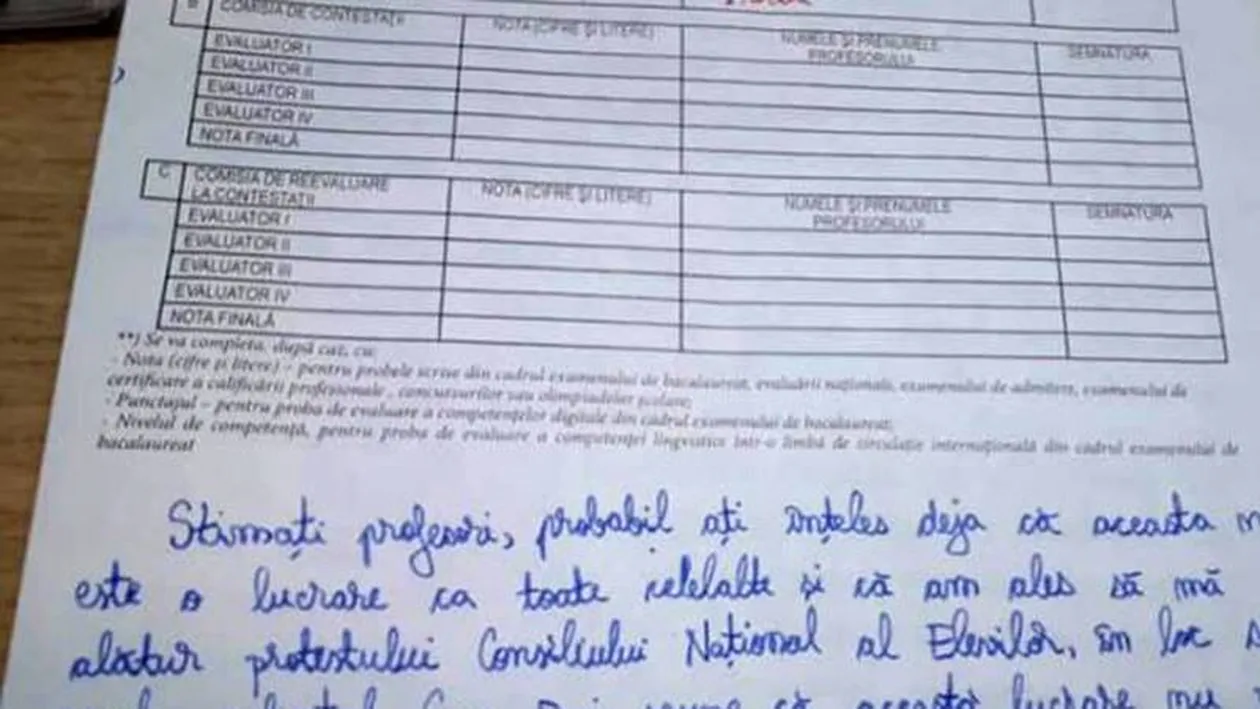 B COMISIA DE CONTESTAȚII NOTA (CIFRE ȘI LITERE) NUMELE ȘI PRENUMELE PROFESORULUI SEMNĂTURA
EVALUATOR I
EVALUATOR II
EVALUATOR III
EVALUATOR IV
NOTA FINALĂ
C COMISIA DE REEVALUARE LA CONTESTAȚII NOTA (CIFRE ȘI LITERE) NUMELE ȘI PRENUMELE PROFESORULUI SEMNĂTURA
EVALUATOR I
EVALUATOR II
EVALUATOR III
EVALUATOR IV
NOTA FINALĂ
**) Se va completa, după caz, cu:
- Nota (cifre și litere) – pentru probele scrise din cadrul examenului de bacalaureat, evaluării naționale, examenului de admitere, examenului de
certificare a calificării profesionale , concursurilor sau olimpiadelor școlare;
- Punctajul – pentru proba de evaluare a competențelor digitale din cadrul examenului de bacalaureat;
- Nivelul de competență, pentru proba de evaluare a competenței lingvistice într-o limbă de circulație internațională din cadrul examenului de
bacalaureat
Stimați profesori, probabil ați înțeles deja că aceasta
este o lucrare ca toate celelalte și că am ales să mă
alătur protestului Consiliului Național al Elevilor, în loc
că această lucrare nu